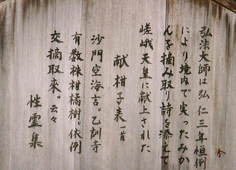 弘法大師は弘仁三年恒例
により境内で実ったみか
んを摘み取り詩を添えて
嵯峨天皇に献上された
献柑子表一首
沙門空海言。乙訓寺
有数株柑橘樹。依例
交摘取来。云々
性霊集